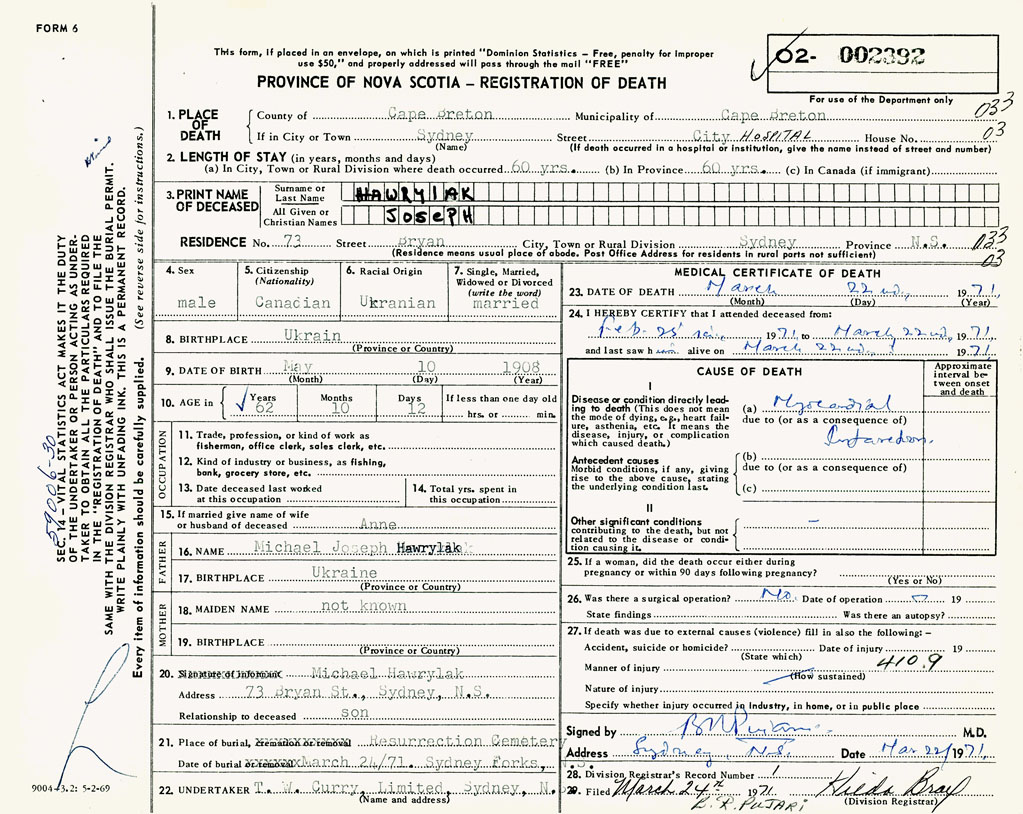 FORM 6
This form, if placed in an envelope, on which is printed "Dominion Statistics – Free, penalty for improper
use $50," and properly addressed will pass through the mail "FREE"
PROVINCE OF NOVA SCOTIA – REGISTRATION OF DEATH
02- 002392
For use of the Department only
1. PLACE OF DEATH
County of Cape Breton Municipality of Cape Breton 033
If in City or Town Sydney Street City HOSPITAL House No. 03
(Name) (If death occurred in a hospital or institution, give the name instead of street and number)
2. LENGTH OF STAY (in years, months and days)
(a) In City, Town or Rural Division where death occurred 60 yrs. (b) In Province 60 yrs. (c) In Canada (if immigrant)
3. PRINT NAME OF DECEASED
Surname or Last Name HAWRYLAK
All Given or Christian Names JOSEPH
RESIDENCE No. 73 Street Bryan City, Town or Rural Division Sydney Province N.S. 033
(Residence means usual place of abode. Post Office Address for residents in rural parts not sufficient) 03
4. Sex
male
5. Citizenship
(Nationality)
Canadian
6. Racial Origin
Ukranian
7. Single, Married,
Widowed or Divorced
(write the word)
married
8. BIRTHPLACE Ukrain
(Province or Country)
9. DATE OF BIRTH May 10 1908
(Month) (Day) (Year)
10. AGE in Years Months Days If less than one day old
62 10 12 hrs. or min.
OCCUPATION
11. Trade, profession, or kind of work as
fisherman, office clerk, sales clerk, etc.
12. Kind of industry or business, as fishing,
bank, grocery store, etc.
13. Date deceased last worked
at this occupation
14. Total yrs. spent in
this occupation
15. If married give name of wife
or husband of deceased Anne
FATHER
16. NAME Michael Joseph Hawrylak
17. BIRTHPLACE Ukraine
(Province or Country)
MOTHER
18. MAIDEN NAME not known
19. BIRTHPLACE
(Province or Country)
20. Signature of informant Michael Hawrylak
Address 73 Bryan St., Sydney, N.S.
Relationship to deceased son
21. Place of burial, cremation or removal Resurrection Cemetery
Date of burial or removal March 24/71. Sydney Forks, N.S.
22. UNDERTAKER T. W. Curry, Limited, Sydney, N.S.
(Name and address)
MEDICAL CERTIFICATE OF DEATH
23. DATE OF DEATH March 22nd, 1971,
(Month) (Day) (Year)
24. I HEREBY CERTIFY that I attended deceased from:
Feb. 25 1971 to March 22nd, 1971,
and last saw him alive on March 22nd, 1971,
CAUSE OF DEATH
Approximate
interval be-
tween onset
and death
I
Disease or condition directly lead-
ing to death (This does not
mean the mode of dying, e.g., heart fail-
ure, asthenia, etc. It means the
disease, injury, or complication
which caused death.)
(a) Myocardial
due to (or as a consequence of)
Infarction.
Antecedent causes
Morbid conditions, if any, giving
rise to the above cause, stating
the underlying condition last.
(b)
due to (or as a consequence of)
(c)
II
Other significant conditions
contributing to the death, but not
related to the disease or condi-
tion causing it. –
25. If a woman, did the death occur either during
pregnancy or within 90 days following pregnancy?
(Yes or No)
26. Was there a surgical operation? No. Date of operation 19
State findings Was there an autopsy?
27. If death was due to external causes (violence) fill in also the following: –
Accident, suicide or homicide? Date of injury 19
(State which) 410.9
Manner of injury
(How sustained)
Nature of injury
Specify whether injury occurred in industry, in home, or in public place
Signed by M.D.
Address Sydney, N.S. Date Mar 22/1971,
28. Division Registrar's Record Number 1
29. Filed March 24th 1971 Hilda Bray
B. R. PUJARI (Division Registrar)
59006-30
SEC. 14 – VITAL STATISTICS ACT MAKES IT THE DUTY
OF THE UNDERTAKER OR PERSON ACTING AS UNDER-
TAKER TO OBTAIN ALL THE PARTICULARS REQUIRED
IN THE "REGISTRATION OF DEATH" AND TO FILE THE
SAME WITH THE DIVISION REGISTRAR WHO SHALL ISSUE THE BURIAL PERMIT.
WRITE PLAINLY WITH UNFADING INK. THIS IS A PERMANENT RECORD.
Every item of information should be carefully supplied. (See reverse side for instructions.)
9004-3.2: 5-2-69